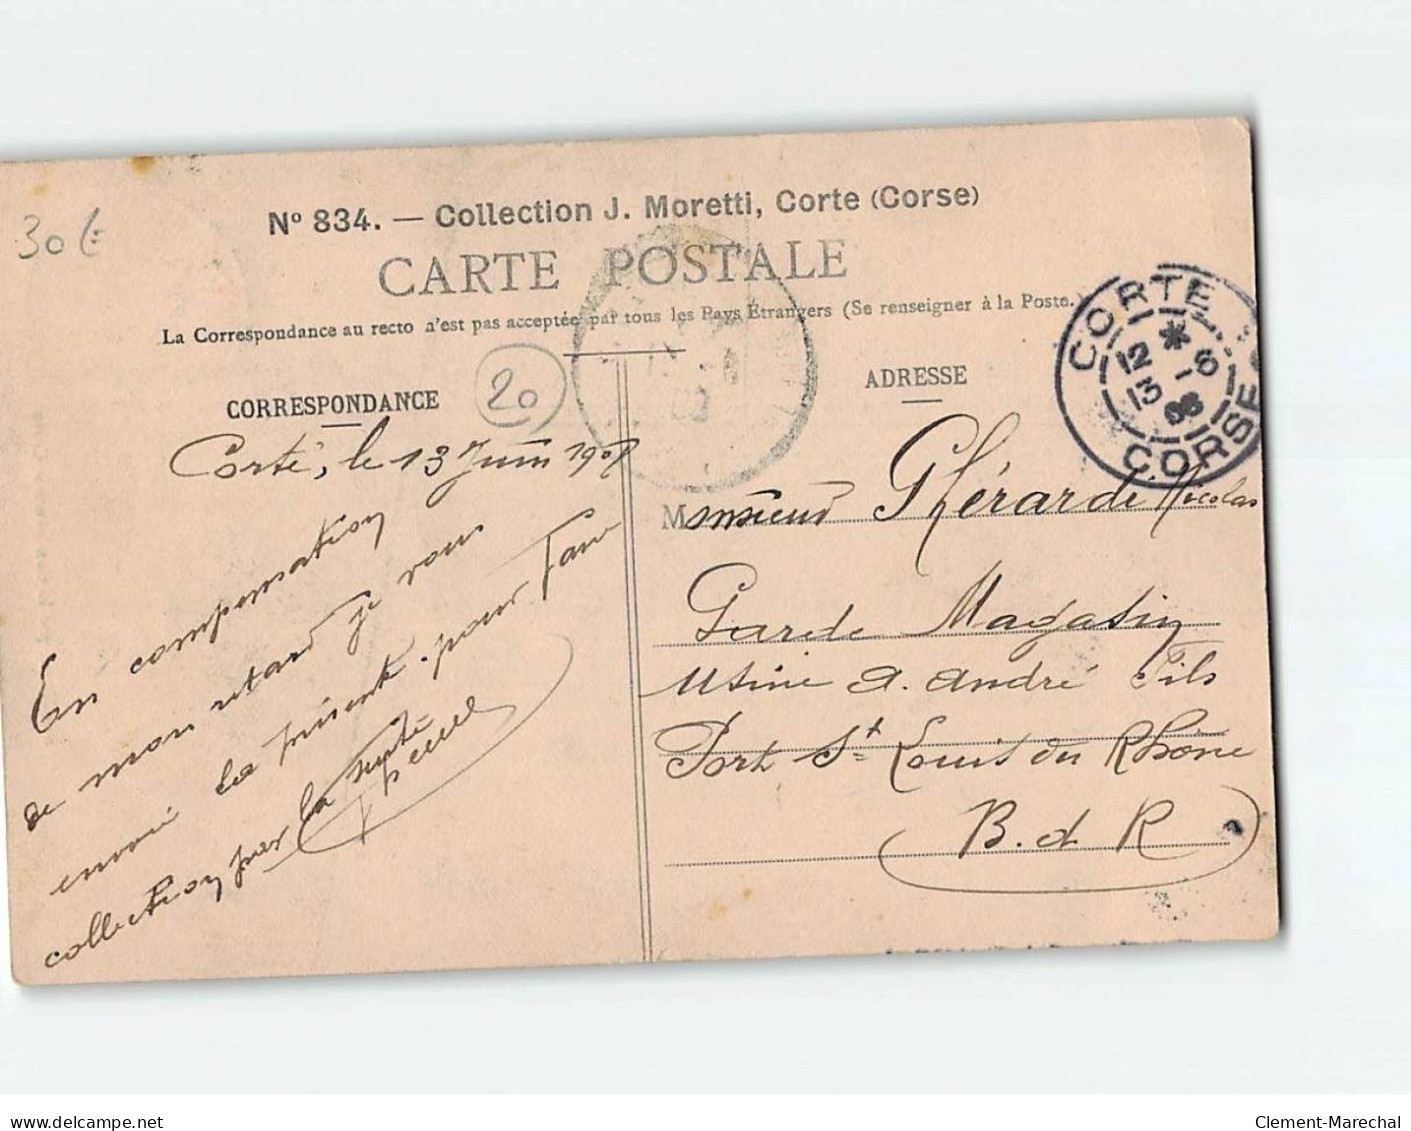 30 €
N° 834. — Collection J. Moretti, Corte (Corse)
CARTE POSTALE
La Correspondance au recto n'est pas acceptée par tous les Pays Étrangers (Se renseigner à la Poste.
CORRESPONDANCE
20
ADRESSE
CORTE
12 * 
13 -6
08
CORSE
Corté, le 13 Juin
En compensation
de mon retard je vous
envoi la présente pour
collection par la
Monsieur Ghérardi Nicolas
Garde Magasin
Usine A. André Fils
Port St Louis du Rhône
B. d R
www.delcampe.net
Clement-Marechal